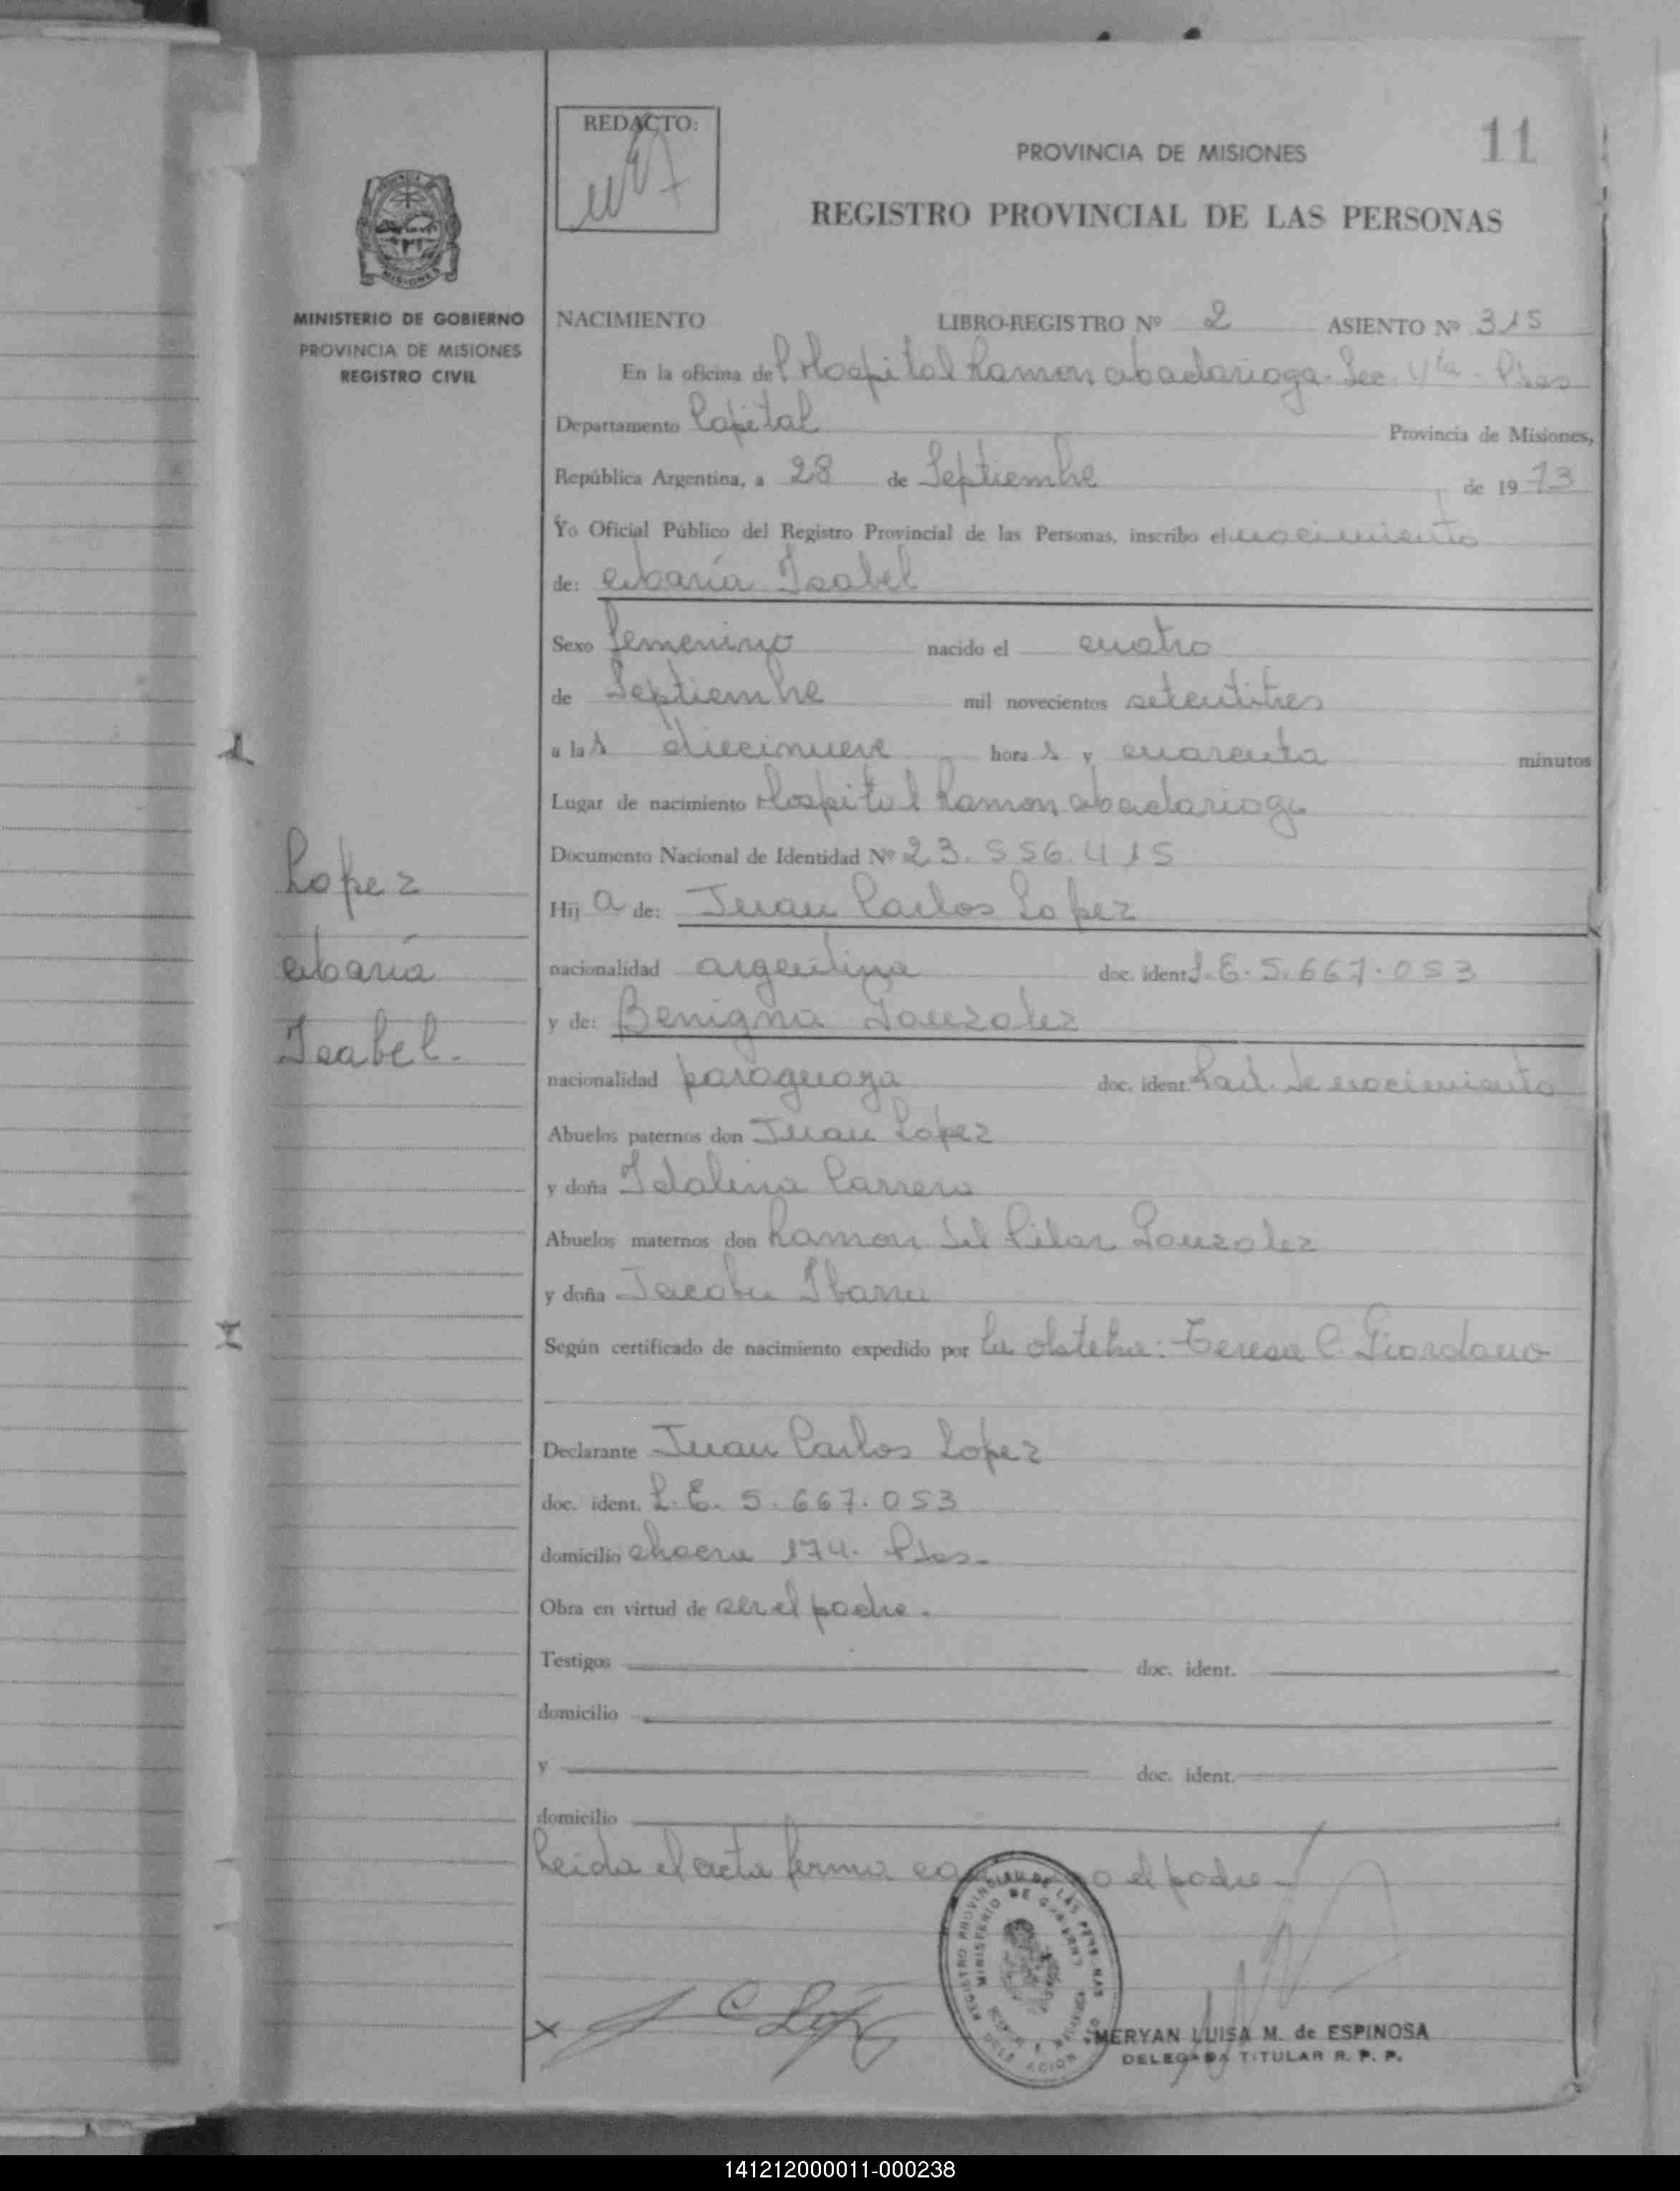 REDACTO:
PROVINCIA DE MISIONES
11
REGISTRO PROVINCIAL DE LAS PERSONAS
MINISTERIO DE GOBIERNO
PROVINCIA DE MISIONES
REGISTRO CIVIL
NACIMIENTO LIBRO-REGISTRO Nº 2 ASIENTO Nº 315
En la oficina del Hospital Ramon Madariaga - Sec. 4ta - Pdas
Departamento Capital Provincia de Misiones,
República Argentina, a 28 de Septiembre de 1973
Yo Oficial Público del Registro Provincial de las Personas, inscribo el nacimiento
de: María Isabel
Sexo femenino nacido el cuatro
de Septiembre mil novecientos setentitres
a las diecinueve horas y cuarenta minutos
Lugar de nacimiento Hospital Ramon Madariaga
Documento Nacional de Identidad Nº 23.556.415
Hija de: Juan Carlos Lopez
nacionalidad argentina doc. ident. L.E. 5.667.053
y de: Benigna Gonzalez
nacionalidad paraguaya doc. ident. Part. de nacimiento
Abuelos paternos don Juan Lopez
y doña Idalina Carrera
Abuelos maternos don Ramon del Pilar Gonzalez
y doña Jacoba Ibarra
Según certificado de nacimiento expedido por la obstetra: Teresa C. Giordano
Declarante Juan Carlos Lopez
doc. ident. L.E. 5.667.053
domicilio chacra 174. Pdas.
Obra en virtud de ser el padre.
Testigos doc. ident.
domicilio
y doc. ident.
domicilio
Leida el acta firma el padre-
Lopez
María
Isabel.
REGISTRO PROVINCIAL DE LAS PERSONAS
MINISTERIO DE GOBIERNO
MERYAN LUISA M. de ESPINOSA
DELEGADA TITULAR R. P. P.
141212000011-000238